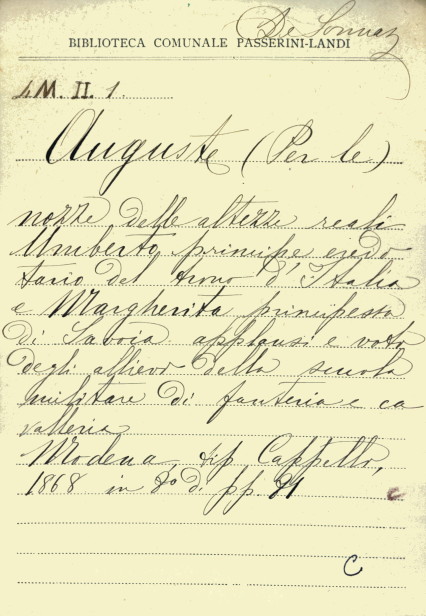 De Sonnaz
BIBLIOTECA COMUNALE PASSERINI-LANDI
4. M. II. 1.
Auguste (Per le)
nozze delle altezze reali
Umberto principe eredi
tario del trono d'Italia
e Margherita principessa
di Savoia applausi e voti
degli allievi della scuola
militare di fanteria e ca
valleria
Modena, tip Cappelli,
1868 in 8º di pp. 91
c
C